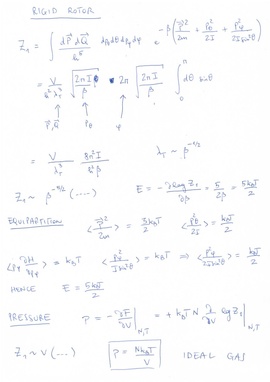 RIGID ROTOR
Z₁ = ∫ dP⃗ dQ⃗ / h⁵ dpθ dθ dpφ dφ e^{-β(P⃗²/2m + pθ²/2I + pφ²/2I sin²θ)}
= V / h² λT³ √(2πI/β) · 2π √(2πI/β) ∫₀^π dθ sinθ
P⃗,Q⃗ pθ φ
= V/λT³ 8π²I/h²β λT ~ β^{-1/2}
Z₁ ~ β^{-5/2} (....) E = -∂ log Z₁/∂β = 5/2β = 5kBT/2
EQUIPARTITION ⟨P⃗²/2m⟩ = 3kBT/2 ⟨pθ²/2I⟩ = kBT/2
⟨pφ ∂H/∂pφ⟩ = kBT ⟨pφ²/I sin²θ⟩ = kBT ⇒ ⟨pφ²/2I sin²θ⟩ = kBT/2
HENCE E = 5kBT/2
PRESSURE P = -∂F/∂V|N,T = + kBT N ∂/∂V log Z₁|N,T
Z₁ ~ V (...) P = NkBT/V IDEAL GAS